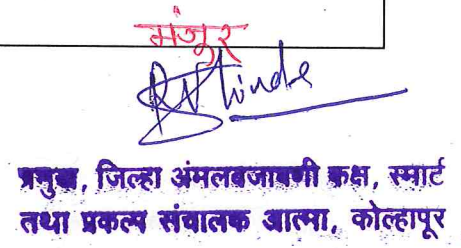 मंजूर
RShinde
प्रमुख, जिल्हा अंमलबजावणी कक्ष, स्मार्ट
तथा प्रकल्प संचालक आत्मा, कोल्हापूर